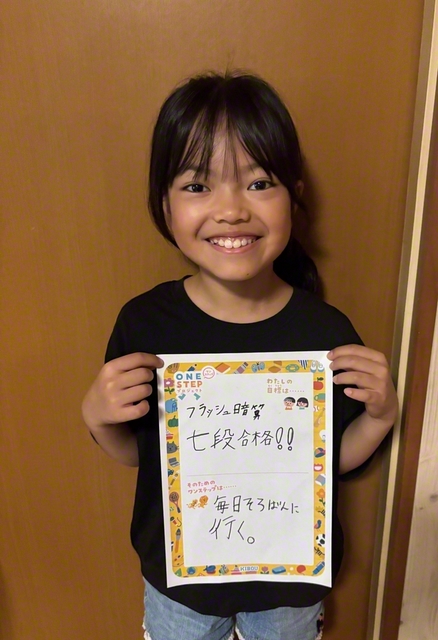 ONE
STEP
プロジェクト
わたしの
目標は……
フラッシュ暗算
七段合格!!
そのための
ワンステップは……
毎日そろばんに
行く。
KIBOU